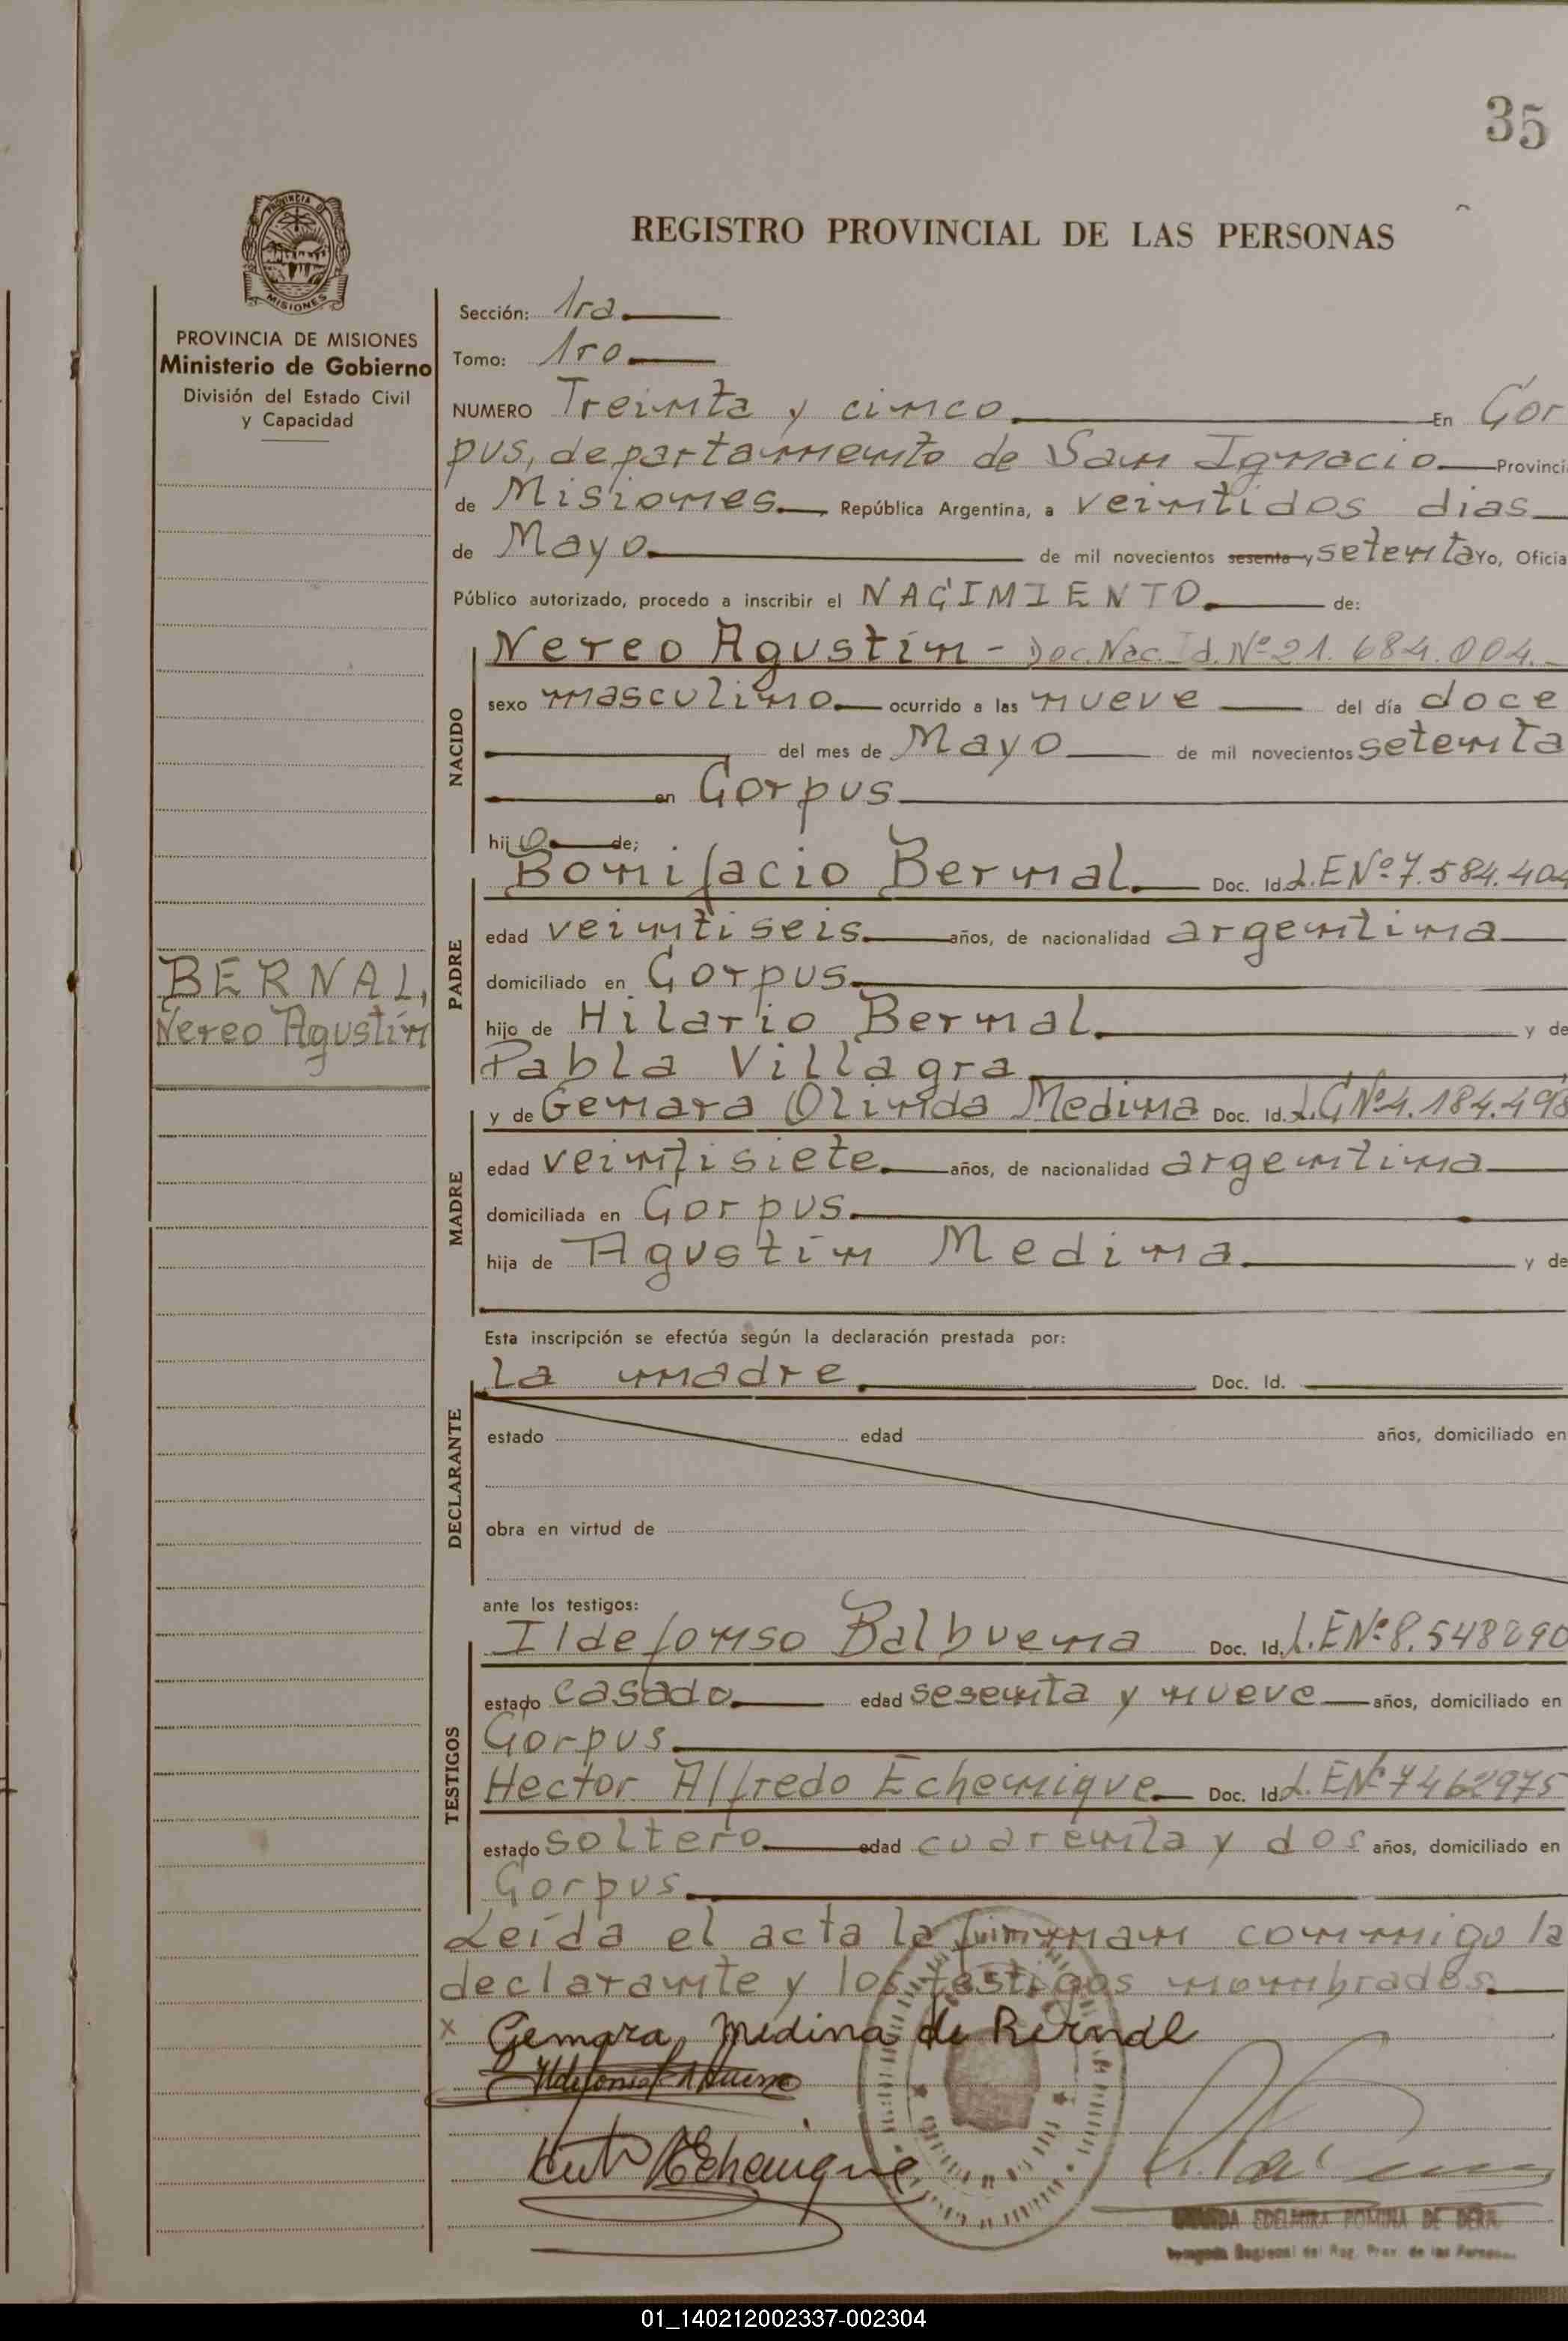 35
REGISTRO PROVINCIAL DE LAS PERSONAS
PROVINCIA DE
MISIONES
PROVINCIA DE MISIONES
Ministerio de Gobierno
División del Estado Civil
y Capacidad
Sección: 1ra
Tomo: 1ro
NUMERO Treinta y cinco En Cor
pus, departamento de San Ignacio Provinci
de Misiones, República Argentina, a veintidos dias
de Mayo de mil novecientos sesenta y setenta Yo, Oficia
Público autorizado, procedo a inscribir el NACIMIENTO de:
NACIDO
Nereo Agustín - Doc. Nac. Id. Nº 21.684.004.-
sexo masculino ocurrido a las nueve del día doce
del mes de Mayo de mil novecientos setenta
en Corpus
hijo de;
PADRE
Bonifacio Bernal. Doc. Id. L.E Nº 7.584.404
edad veintiseis años, de nacionalidad argentina
domiciliado en Corpus
hijo de Hilario Bernal y de
Pabla Villagra
BERNAL,
Nereo Agustín
MADRE
y de Genara Olinda Medina Doc. Id. L.C Nº 4.184.498
edad veintisiete años, de nacionalidad argentina
domiciliada en Corpus
hija de Agustín Medina y de
Esta inscripción se efectúa según la declaración prestada por:
DECLARANTE
La madre Doc. Id.
estado edad años, domiciliado en
obra en virtud de
ante los testigos:
TESTIGOS
Ildefonso Balbuena Doc. Id. L.E Nº 8.548290
estado casado edad sesenta y nueve años, domiciliado en
Corpus
Hector Alfredo Echenique Doc. Id. L.E Nº 7462975
estado soltero edad cuarenta y dos años, domiciliado en
Corpus
Leída el acta la conmigo la
declarante y los testigos nombrados.
x Genara Medina de Bernal
Echenique
EDELMIRA ROMINA DE
Regional del Reg. Prov. de las
01_140212002337-002304